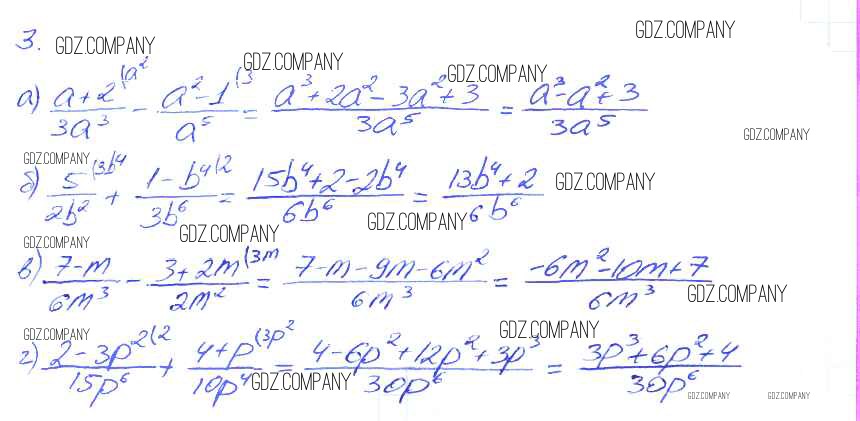 3. GDZ.COMPANY GDZ.COMPANY GDZ.COMPANY GDZ.COMPANY
а) (a+2)/(3a³) (a² − (a²−1)/(a⁵) (3 = (a³+2a²−3a²+3)/(3a⁵) = (a³−a²+3)/(3a⁵) GDZ.COMPANY
GDZ.COMPANY
б) 5/(2b²) (3b⁴ + (1−b⁴)/(3b⁶) (2 = (15b⁴+2−2b⁴)/(6b⁶) = (13b⁴+2)/(6b⁶) GDZ.COMPANY
GDZ.COMPANY GDZ.COMPANY GDZ.COMPANY
в) (7−m)/(6m³) − (3+2m)/(2m²) (3m = (7−m−9m−6m²)/(6m³) = (−6m²−10m+7)/(6m³) GDZ.COMPANY
GDZ.COMPANY GDZ.COMPANY
г) (2−3p²)/(15p⁶) (2 + (4+p)/(10p⁴) (3p² = (4−6p²+12p²+3p³)/(30p⁶) = (3p³+6p²+4)/(30p⁶)
GDZ.COMPANY GDZ.COMPANY GDZ.COMPANY